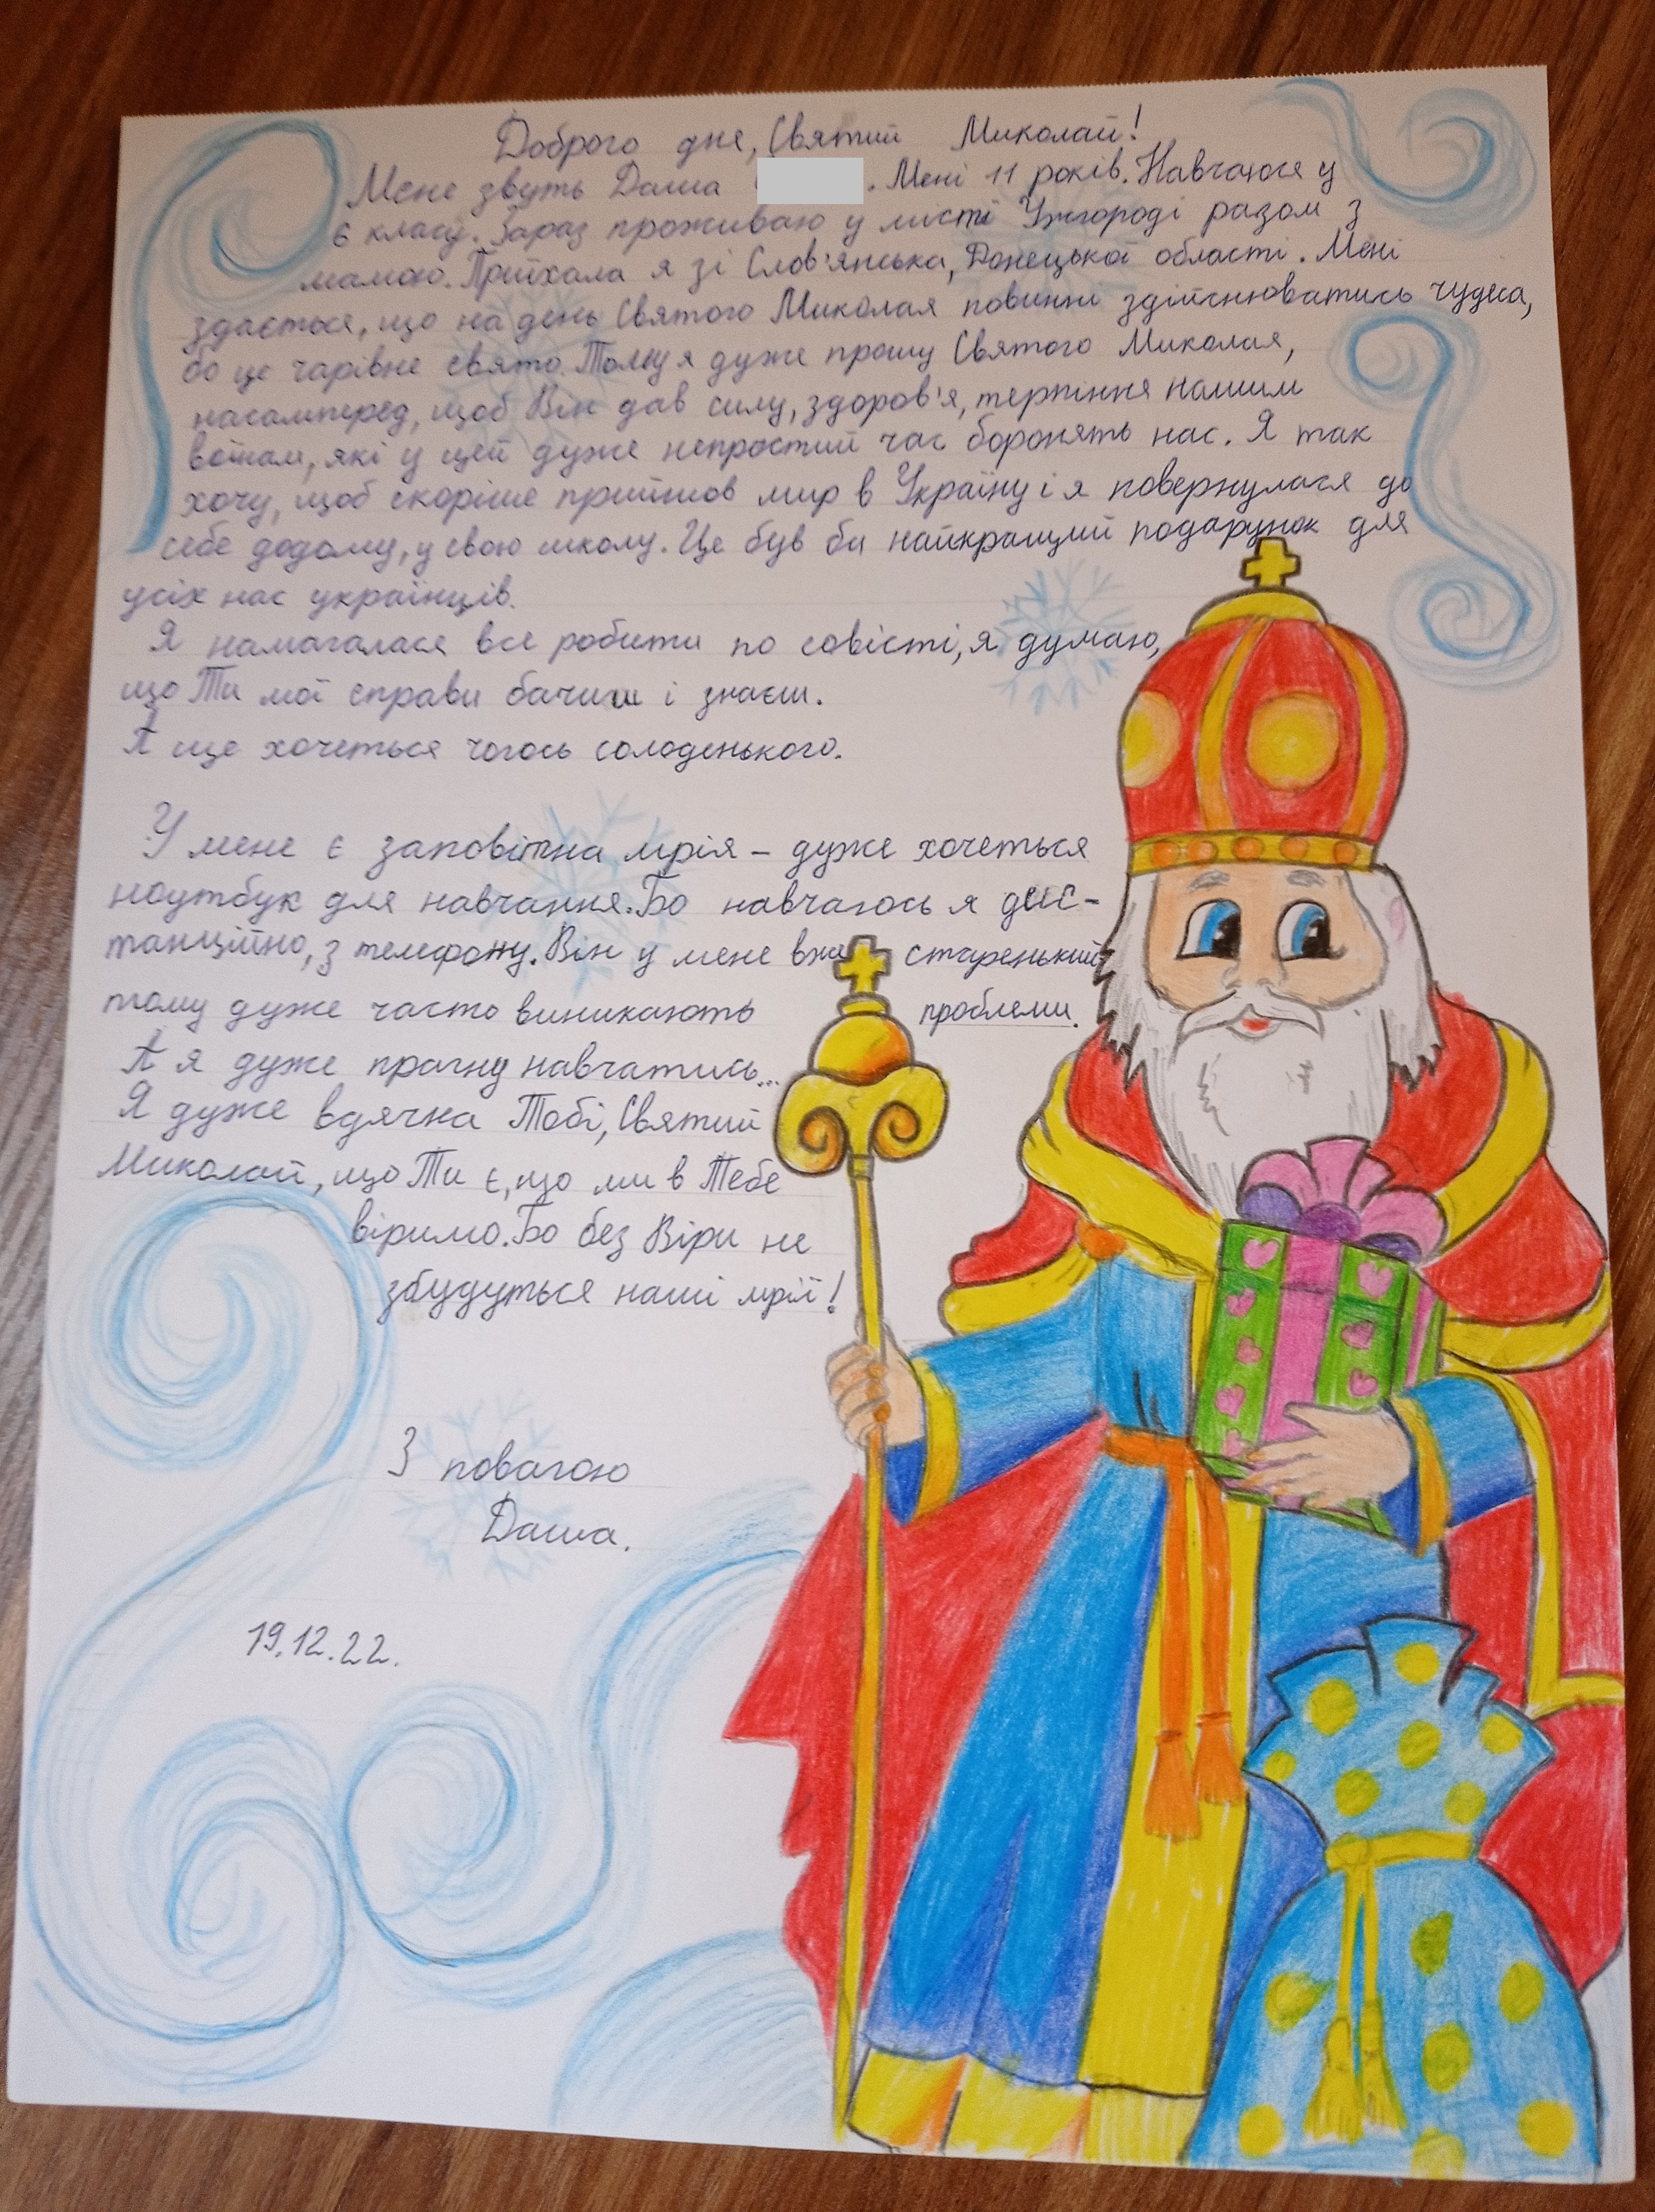 Доброго дня, Святий Миколай!
Мене звуть Даша . Мені 11 років. Навчаюся у
6 класі. Зараз проживаю у місті Ужгороді разом з
мамою. Приїхала я зі Слов'янська, Донецької області. Мені
здається, що на день Святого Миколая повинні здійснюватись чудеса,
бо це чарівне свято. Тому я дуже прошу Святого Миколая,
насамперед, щоб Він дав силу, здоров'я, терпіння нашим
воїнам, які у цей дуже непростий час боронять нас. Я так
хочу, щоб скоріше прийшов мир в Україну і я повернулася до
себе додому, у свою школу. Це був би найкращий подарунок для
усіх нас українців.
Я намагалася все робити по совісті, я думаю,
що Ти мої справи бачиш і знаєш.
А ще хочеться чогось солоденького.
У мене є заповітна мрія – дуже хочеться
ноутбук для навчання. Бо навчаюсь я дис-
танційно, з телефону. Він у мене вже старенький
тому дуже часто виникають проблеми.
А я дуже прагну навчатись...
Я дуже вдячна Тобі, Святий
Миколай, що Ти є, що ми в Тебе
віримо. Бо без Віри не
збудуться наші мрії!
З повагою
Даша.
19.12.22.